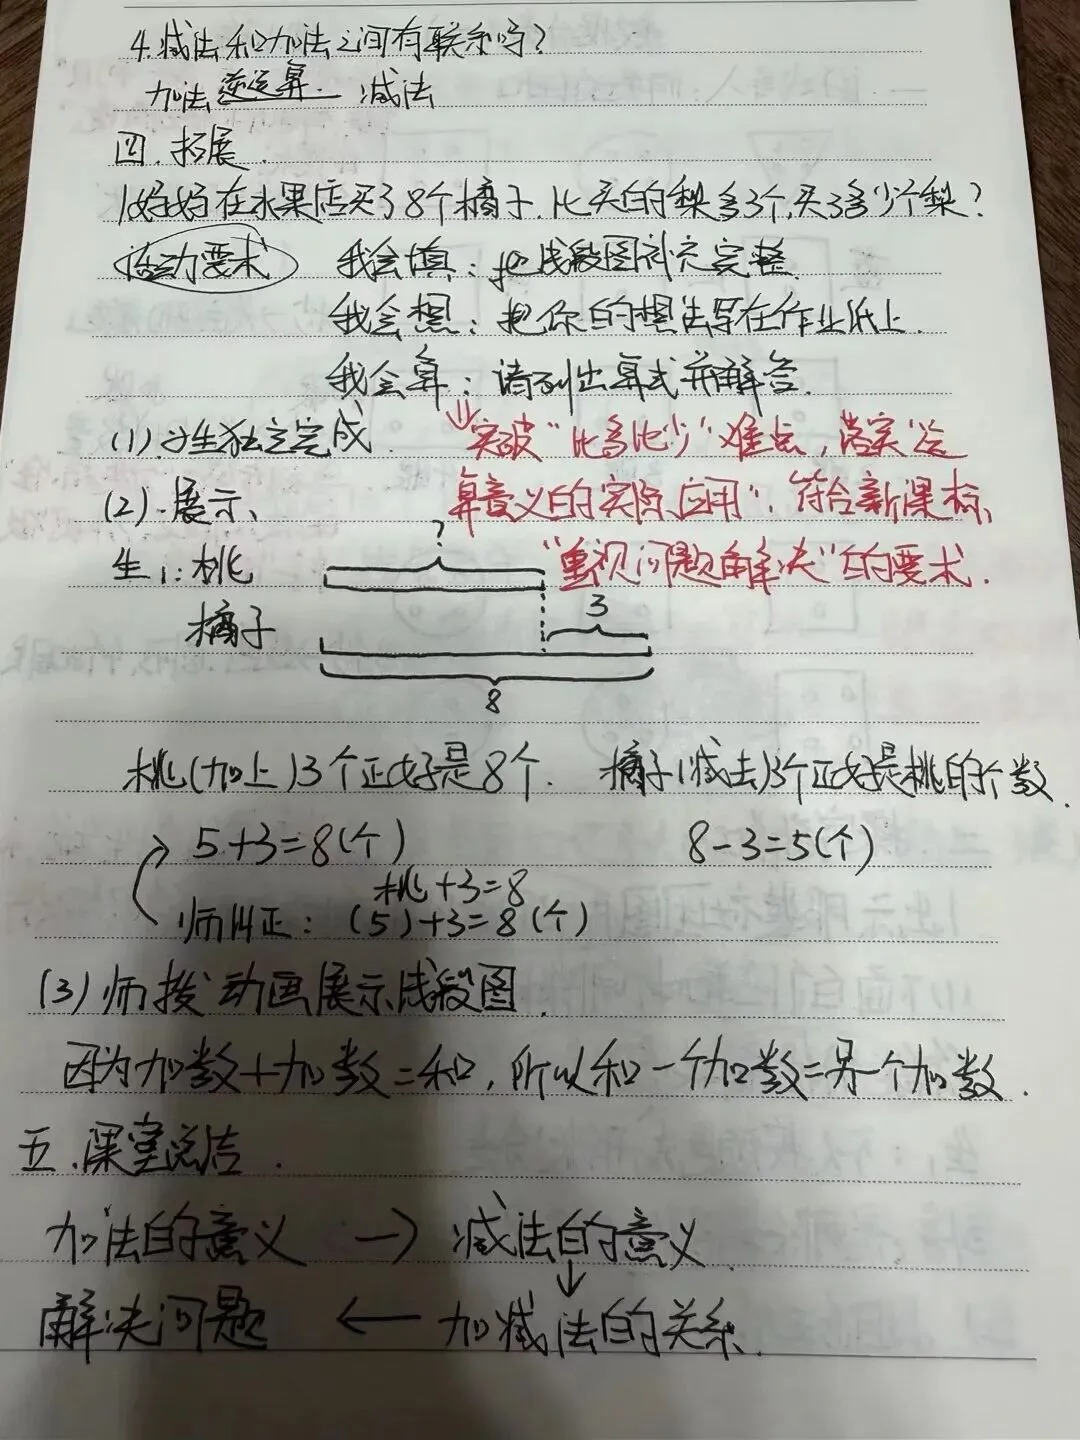 4.减法和加法之间有联系吗?
加法 逆运算 减法
四.拓展.
1.妈妈在水果店买了8个橘子.比买的梨多3个,买了多少个梨?
活动要求 我会填:把线段图补充完整.
我会想:把你的想法写在作业纸上.
我会算:请列出算式并解答.
(1)学生独立完成
突破"比多比少"难点,落实"运
(2).展示、
算意义的实际应用",符合新课标,
"重视问题解决"的要求.
?
生1:桃
3
橘子
8
桃(加上)3个正好是8个. 橘子(减去)3个正好是桃的个数.
5+3=8(个) 8-3=5(个)
桃+3=8
师纠正:(5)+3=8(个)
(3)师拨动画展示线段图.
因为加数+加数=和,所以和-一个加数=另一个加数.
五.课堂总结.
加法的意义 → 减法的意义
↓
解决问题 ← 加减法的关系.